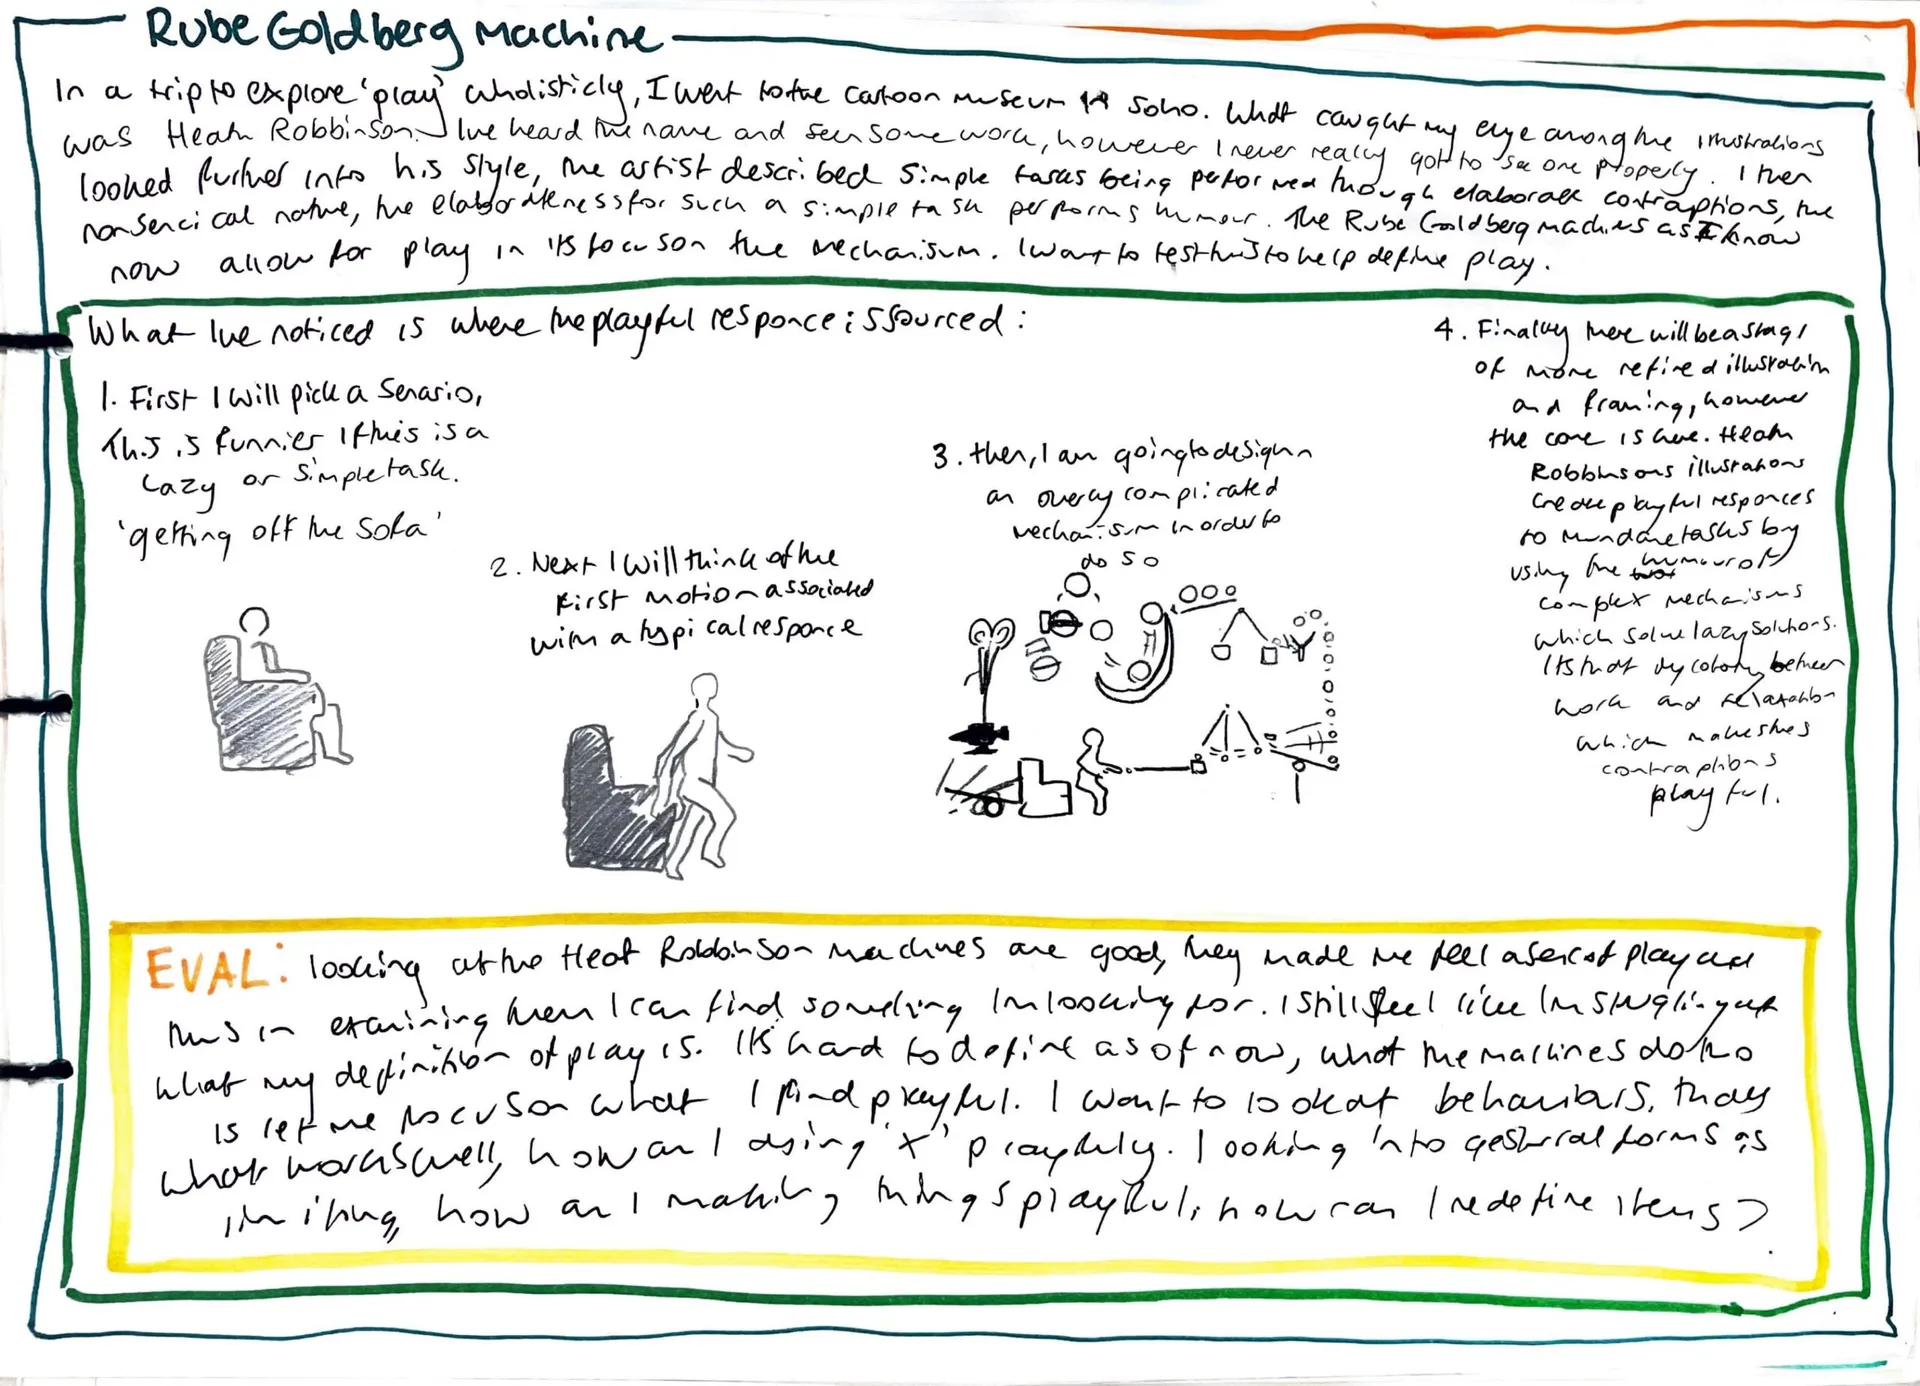 Rube Goldberg Machine
In a trip to explore 'play' wholisticly, I went to the Cartoon Museum in Soho. What caught my eye among the illustrations
was Heath Robbinson. Ive heard the name and seen some work, however I never really got to see one properly. I then
looked further into his style, the artist described simple tasks being performed though elaborate contraptions, the
nonsencical nature, the elaborateness for such a simple task performs humour. The Rube Goldberg machines as I know
now allow for play in its focus on the mechanism. I want to test this to help define play.
What Ive noticed is where the playful responce is sourced:
1. First I will pick a senario,
This is funnier if this is a
Lazy or simple task.
'getting off the sofa'
2. Next I will think of the
first motion associated
with a typical responce
3. then, I am going to design
an overly complicated
mechanism in order to
do so
4. Finally there will be a stage
of more refined illustration
and framing, however
the core is here. Heath
Robbinsons illustrations
create playful responces
to mundane tasks by
using the humour of
complex mechanisms
which solve lazy solutions.
Its that between
work and relaxation
which makes these
contraptions
playful.
EVAL: looking at the Heat Robbinson machines are good, they made me feel a sense of play and
thus in examining them I can find something Im looking for. I still feel like Im
what my definition of play is. Its hard to define as of now, what the machines do tho
is let me focus on what I find playful. I want to look at behaviours,
what works well, how am I using 'x' playfully. Looking into gestural forms as
how am I making things playful, how can I redefine items?